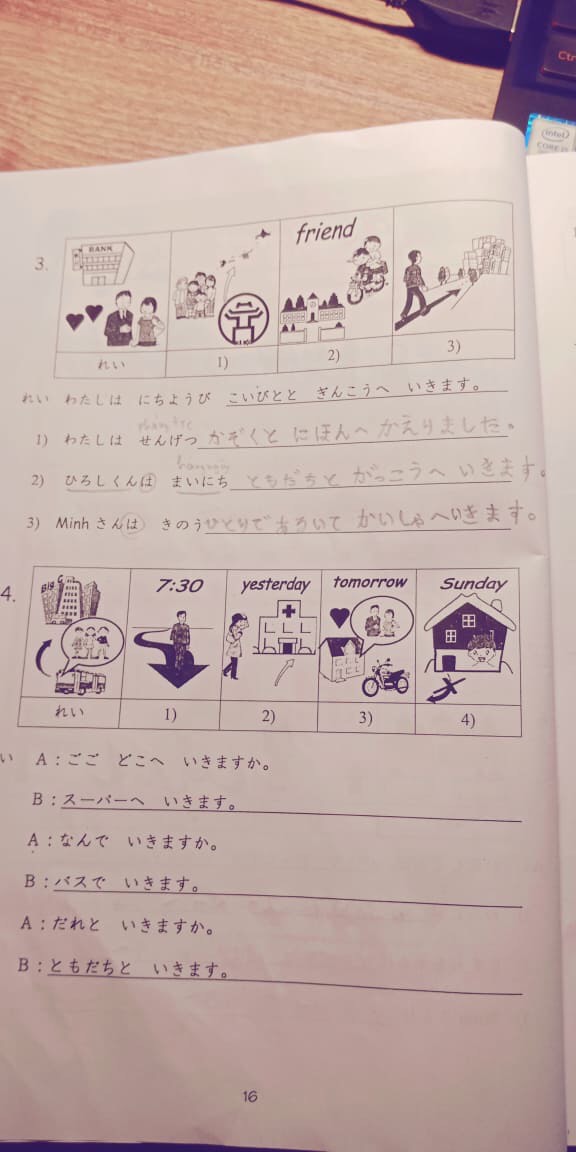 Ctr
intel
CORE i5
3.
BANK
friend
れい
1)
2)
3)
れい わたしは にちようび こいびとと ぎんこうへ いきます。
1) わたしは せんげつ かぞくと にほんへ かえりました。
2) ひろしくんは まいにち ともだちと がっこうへ いきます。
3) Minh さんは きのう ひとりで あるいて かいしゃへいきます。
4.
BIG C
7:30
yesterday
tomorrow
Sunday
れい
1)
2)
3)
4)
い A：ごご どこへ いきますか。
B：スーパーへ いきます。
A：なんで いきますか。
B：バスで いきます。
A：だれと いきますか。
B：ともだちと いきます。
16